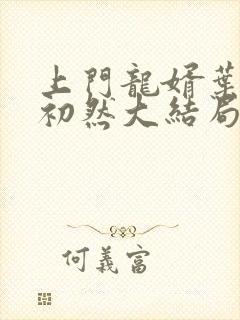 上門龍婿葉
初然大結局
何義富